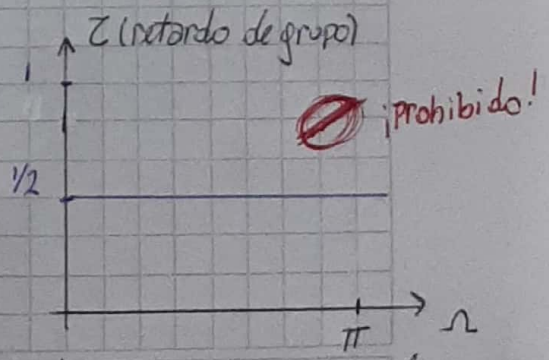 τ (retardo de grupo)
1
¡prohibido!
1/2
π
Ω